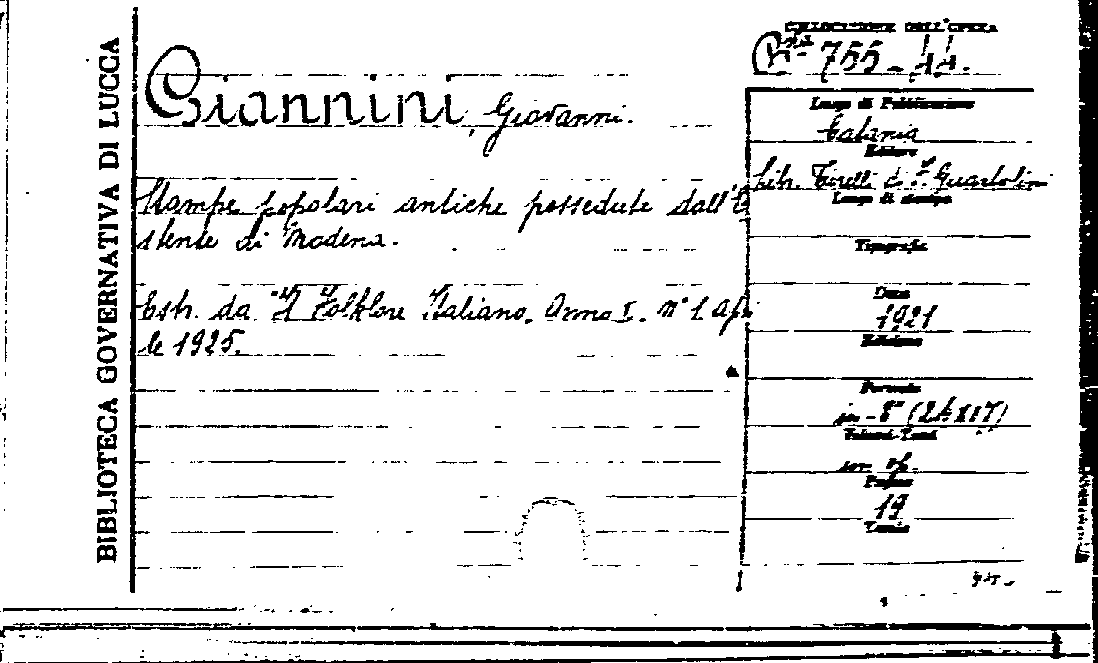 BIBLIOTECA GOVERNATIVA DI LUCCA
COLLOCAZIONE DELL'OPERA
755-44.
Giannini, Giovanni.
Stampe popolari antiche possedute dall'E
stense di Modena.
Estr. da "Il Folklore Italiano. Anno I. n° 1 Apri
le 1925.
Luogo di Pubblicazione
Catania
Editore
Libr. Tirelli di F. Guaitolini
Luogo di stampa
Tipografia
Data
1921
Edizione
Formato
in-8° (24x17)
Volumi-Tomi
un op.
Pagine
19
Tavole